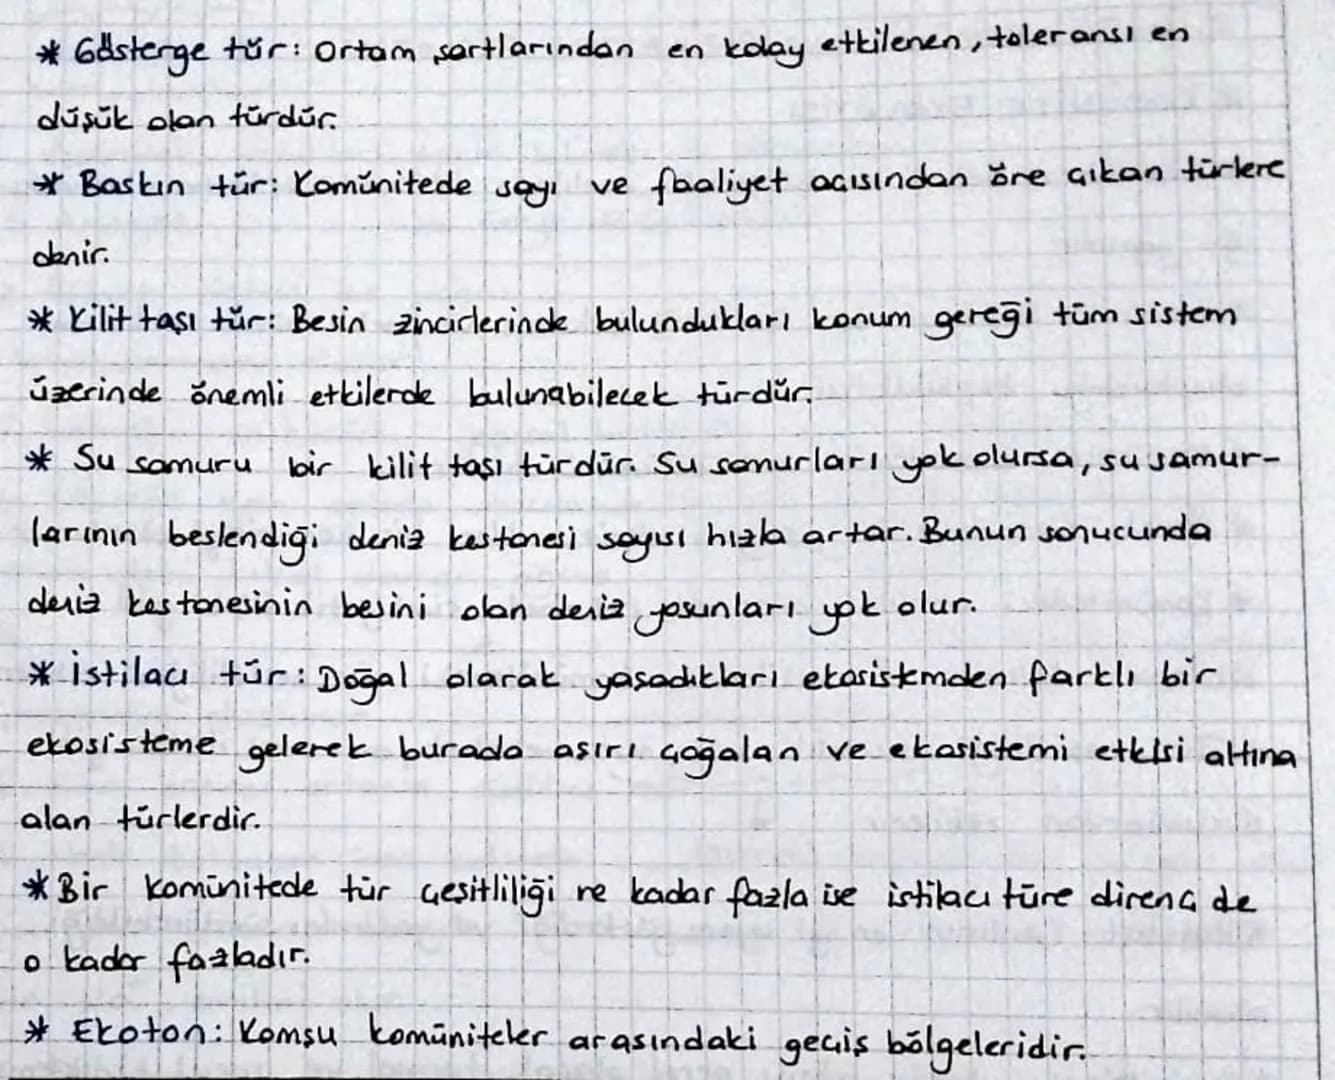 * Gösterge tür: Ortam şartlarından en kolay etkilenen, toleransı en
düşük olan türdür.
* Baskın tür: Komünitede sayı ve faaliyet açısından öne çıkan türlere
denir.
* Kilit taşı tür: Besin zincirlerinde bulundukları konum gereği tüm sistem
üzerinde önemli etkilerde bulunabilecek türdür.
* Su samuru bir kilit taşı türdür. Su samurları yok olursa, su samur-
larının beslendiği deniz kestanesi sayısı hızla artar. Bunun sonucunda
deniz kestanesinin besini olan deniz yosunları yok olur.
* İstilacı tür: Doğal olarak yaşadıkları ekosistemden farklı bir
ekosisteme gelerek burada aşırı çoğalan ve ekosistemi etkisi altına
alan türlerdir.
* Bir komünitede tür çeşitliliği ne kadar fazla ise istilacı türe direnç de
o kadar fazladır.
* Ekoton: Komşu komüniteler arasındaki geçiş bölgeleridir.